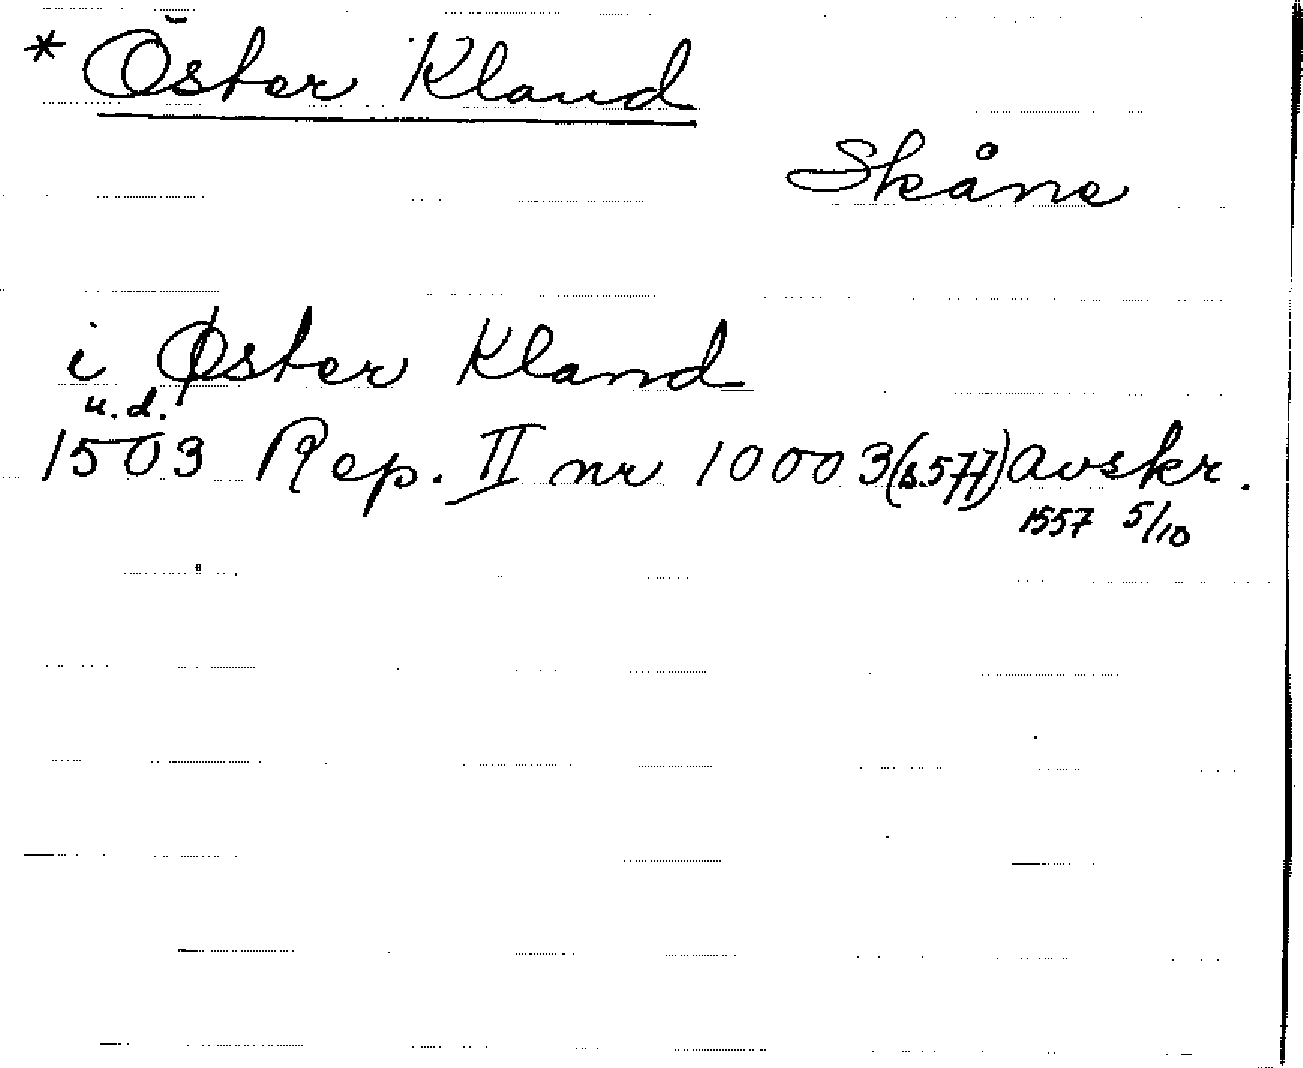 * Öster Kland
Skåne
i Øster Kland
u.d.
1503 Rep. II nr 10003 (s.577) Avskr.
1557 5/10